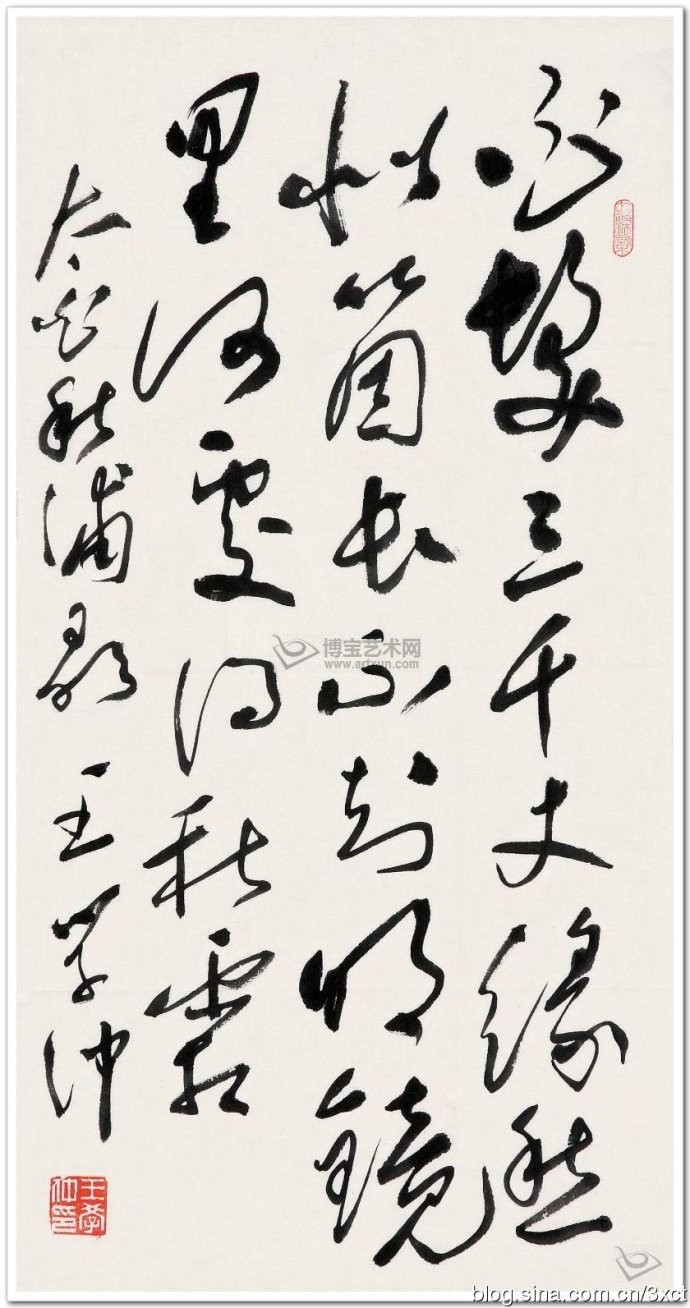 白髮三千丈緣愁
似箇長不知明鏡
里何處得秋霜
太白秋浦歌 王学仲
王學仲印
博宝艺术网
www.artxun.com
blog.sina.com.cn/3xct